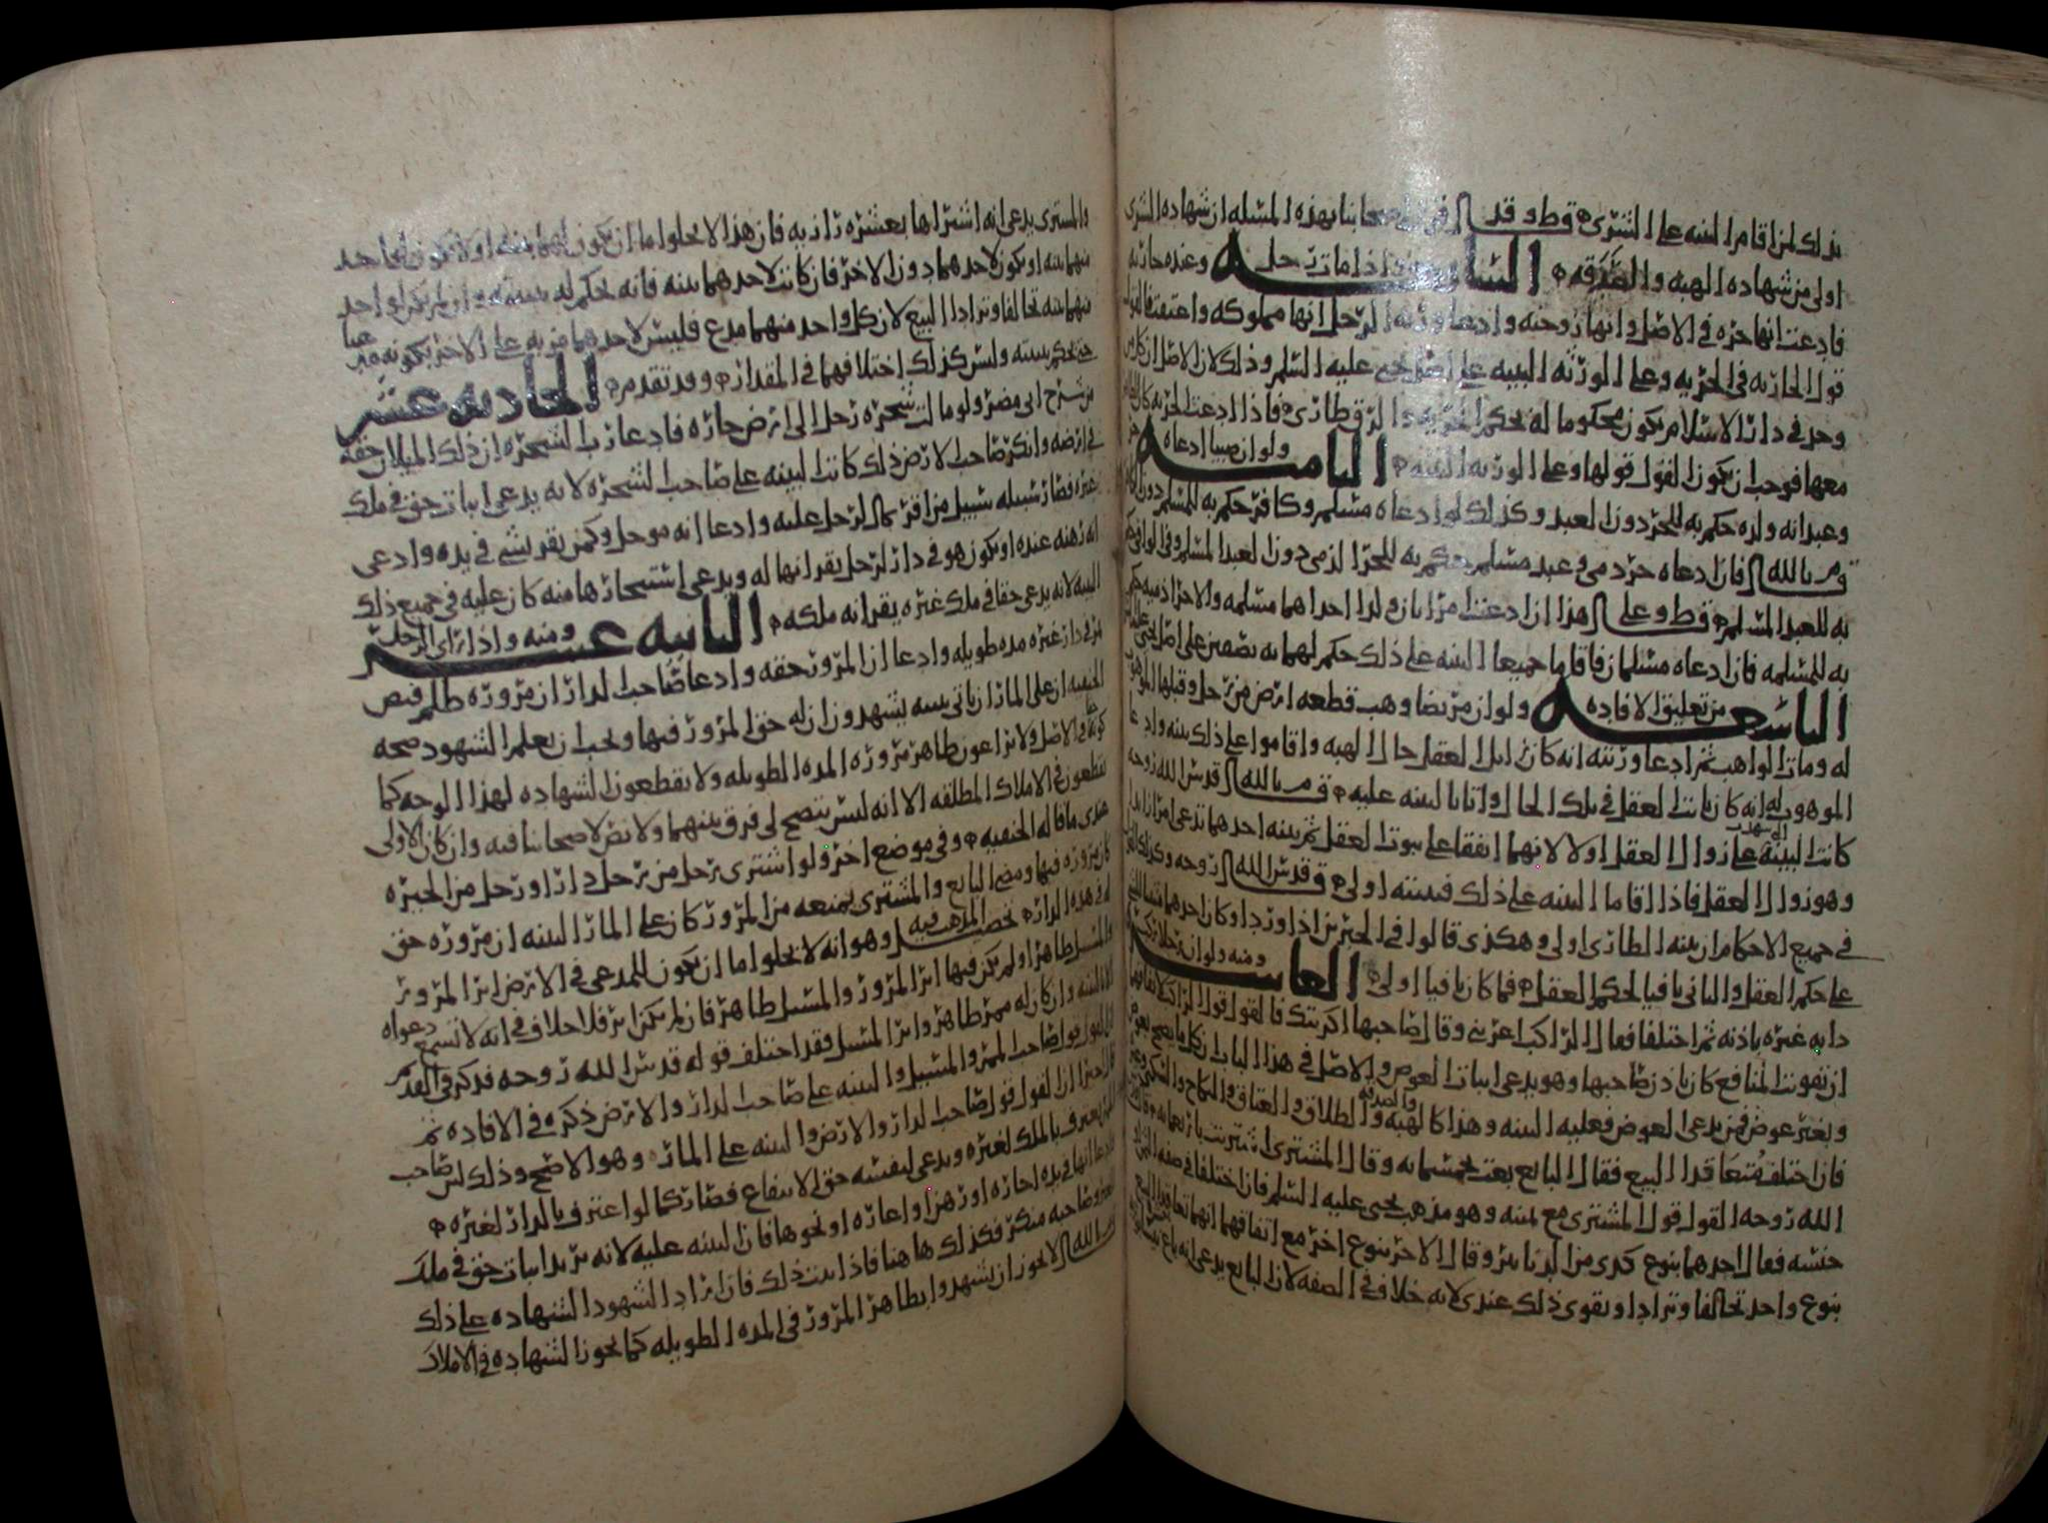 بذلك لمن اقام البينه على الشرى قط وقد اصحابنا بهذه المسله ان شهاده الشرى
اولى من شهاده الهبه والصدقه السابعه واذا مات رجل وعنده جاريه
فادعت انها حره في الاصل وانها زوجته وادعا ورثه الرجل انها مملوكه واعتقت فالقول
قول الجاريه في الحريه وعلى الورثه البينه على اصل يحيى عليه السلم وذلك لان الاصل ان كل من
وجد في دار الاسلام يكون محكوما له بحكم الحريه والرق طارى فاذا ادعت الحريه كان
معها فوجب ان يكون القول قولها وعلى الورثه البينه الثامنه ولو ان صبيا ادعاه حر
وعبد انه ولده حكم به للحر دون العبد وكذلك لو ادعاه مسلم وكافر حكم به للمسلم دون الكافر
وم بالله فان ادعاه حر ذمي وعبد مسلم حكم به للحر الذمي دون العبد المسلم وفي الوافي حكم
به للعبد المسلم قط وعلى هذا ان ادعت امراتان ولدا احداهما مسلمه والاخرى ذميه حكم
به للمسلمه فان ادعاه مسلمان فاقاما جميعا البينه على ذلك حكم لهما به نص عين على اصل يحيى عليه السلم
التاسعه من تعليق الافاده ولو ان مريضا وهب قطعه ارض من رجل وقبلها الموهوب
له ومات الواهب ثم ادعا ورثته انه كان زايل العقل حال الهبه واقاموا على ذلك بينه وادعا
الموهوب له انه كان ثابت العقل في تلك الحال واتا بالبينه عليه وم بالله قدس الله روحه
كانت البينه على زوال العقل اولا لانهما اتفقا على ثبوت العقل ثم بينه احدهما تدعي امرا زايدا
وهو زوال العقل فاذا اقاما البينه على ذلك فبينته اولى وقدس الله روحه وكذلك القول
في جميع الاحكام ان بينه الطارى اولى وهكذى قالوا في الخبرين اذا وردا وكان احدهما متبقيا
على حكم العقل والثاني نافيا لحكم العقل فما كان نافيا اولى العاشره ومنه ولو ان رجلا ركب
دابه غيره باذنه ثم اختلفا فقال الراكب اعرتني وقال صاحبها اكريتك فالقول قول الراكب لانه
ان تفويت المنافع كان باذن صاحبها وهو يدعي اثبات العوض والاصل في هذا الباب ان كل ما يصح بعوض
وبغير عوض فمن يدعي العوض فعليه البينه وهذا كالهبه والصدقه والطلاق والعتاق والنكاح
فان اختلف متبايعا قدر المبيع فقال البايع بعت بخمسمايه وقال المشترى اشتريت باربعمايه
الله روحه القول قول المشترى مع يمينه وهو مذهب يحيى عليه السلم فان اختلفا في صفه الثمن
جنسه فقال احدهما بنوع كذى من الدنانير وقال الاخر بنوع اخر مع اتفاقهما انهما تعاقدا البيع
بنوع واحد تحالفا وترادا ويقوى ذلك عندي لانه خلاف في الصفه لان البايع يدعي انه باع
والمشترى يدعي انه اشتراها بعشره رازيه فان هذا لا يخلوا ما ان يكون لهما بينه اولا يكون لواحد
منهما بينه او يكون لاحدهما دون الاخر فان كانت لاحدهما بينه فانه يحكم له ببينته وان لم يكن لواحد
منهما بينه تحالفا وترادا البيع لان كل واحد منهما مدع فليس لاحدهما مزيه على الاخر بكونه مدعيا
حتى يحكم ببينته وليس كذلك اختلافهما في المقدار وقد تقدم الحاديه عشر
من شرح ابي مضر ولو مالت شجره رجل الى ارض جاره فادعا رب الشجره ان ذلك الميلان حقه
في ارضه وانكر صاحب الارض ذلك كانت البينه على صاحب الشجره لانه يدعي اثبات حق في ملك
غيره فصار سبيله سبيل من اقر بمال لرجل عليه وادعا انه موجل وكمن يقر بشي في يده وادعى
انه رهنه عنده او يكون هو في دار لرجل يقر انها له ويدعي استيجارها منه كان عليه في جميع ذلك
البينه لانه يدعي حقا في ملك غيره يقر انه ملكه الثانيه عشر ومنه واذا راى الرجل
يمر في دار غيره مده طويله وادعا ان المرور حقه وادعا صاحب الدار ان مروره ظلم فنص
الحنفيه ان على المار ان ياتي ببينه يشهدون ان له حق المرور فيها ويجب ان يعلم الشهود صحه
كونه حقا في الاصل ولا يراعون ظاهر مروره المده الطويله ولا يقطعون الشهاده لهذا الوجه كما
يقطعون في الاملاك المطلقه الا انه ليس يتضح لي فرق بينهما ولا نص لاصحابنا فيه وان كان الاولى
عندي ما قاله الحنفيه وفي موضع اخر ولو اشترى رجل من رجل دارا ورجل من الجيره
كان مروره فيها ومنع البايع والمشترى يمنعه من المرور كان على المار البينه ان مروره حق
له في هذه الدار تحصيل المذهب فيه وهو انه لا يخلوا ما ان يكون للمدعي في الارض اثر المرور
والمسيل ظاهرا ولم يكن فيها اثر المرور والمسيل ظاهر فان لم يكن اثر فلا خلاف في انه لا تسمع دعواه
الا بالبينه وان كان له ممر ظاهر واثر المسيل فقد اختلف قوله قدس الله روحه فذكر في القديم
ان القول قول صاحب الممر والمسيل والبينه على صاحب الدار والارض ذكره في الافاده ثم
قال اخيرا ان القول قول صاحب الدار والارض والبينه على المار وهو الاصح وذلك لان صاحب
يعترف بالملك لغيره ويدعي لنفسه حق الانتفاع فصار كما لو اعترف بالدار لغيره
وادعا انها في يده اجاره او رهنا او اعاره او نحوها فان البينه عليه لانه يريد اثبات حق في ملك
وصاحبه منكر فكذلك هاهنا فاذا ثبت ذلك فان اراد الشهود الشهاده على ذلك
بالله لا يجوز ان يشهدوا بظاهر المرور في المده الطويله كما يجوز الشهاده في الاملاك